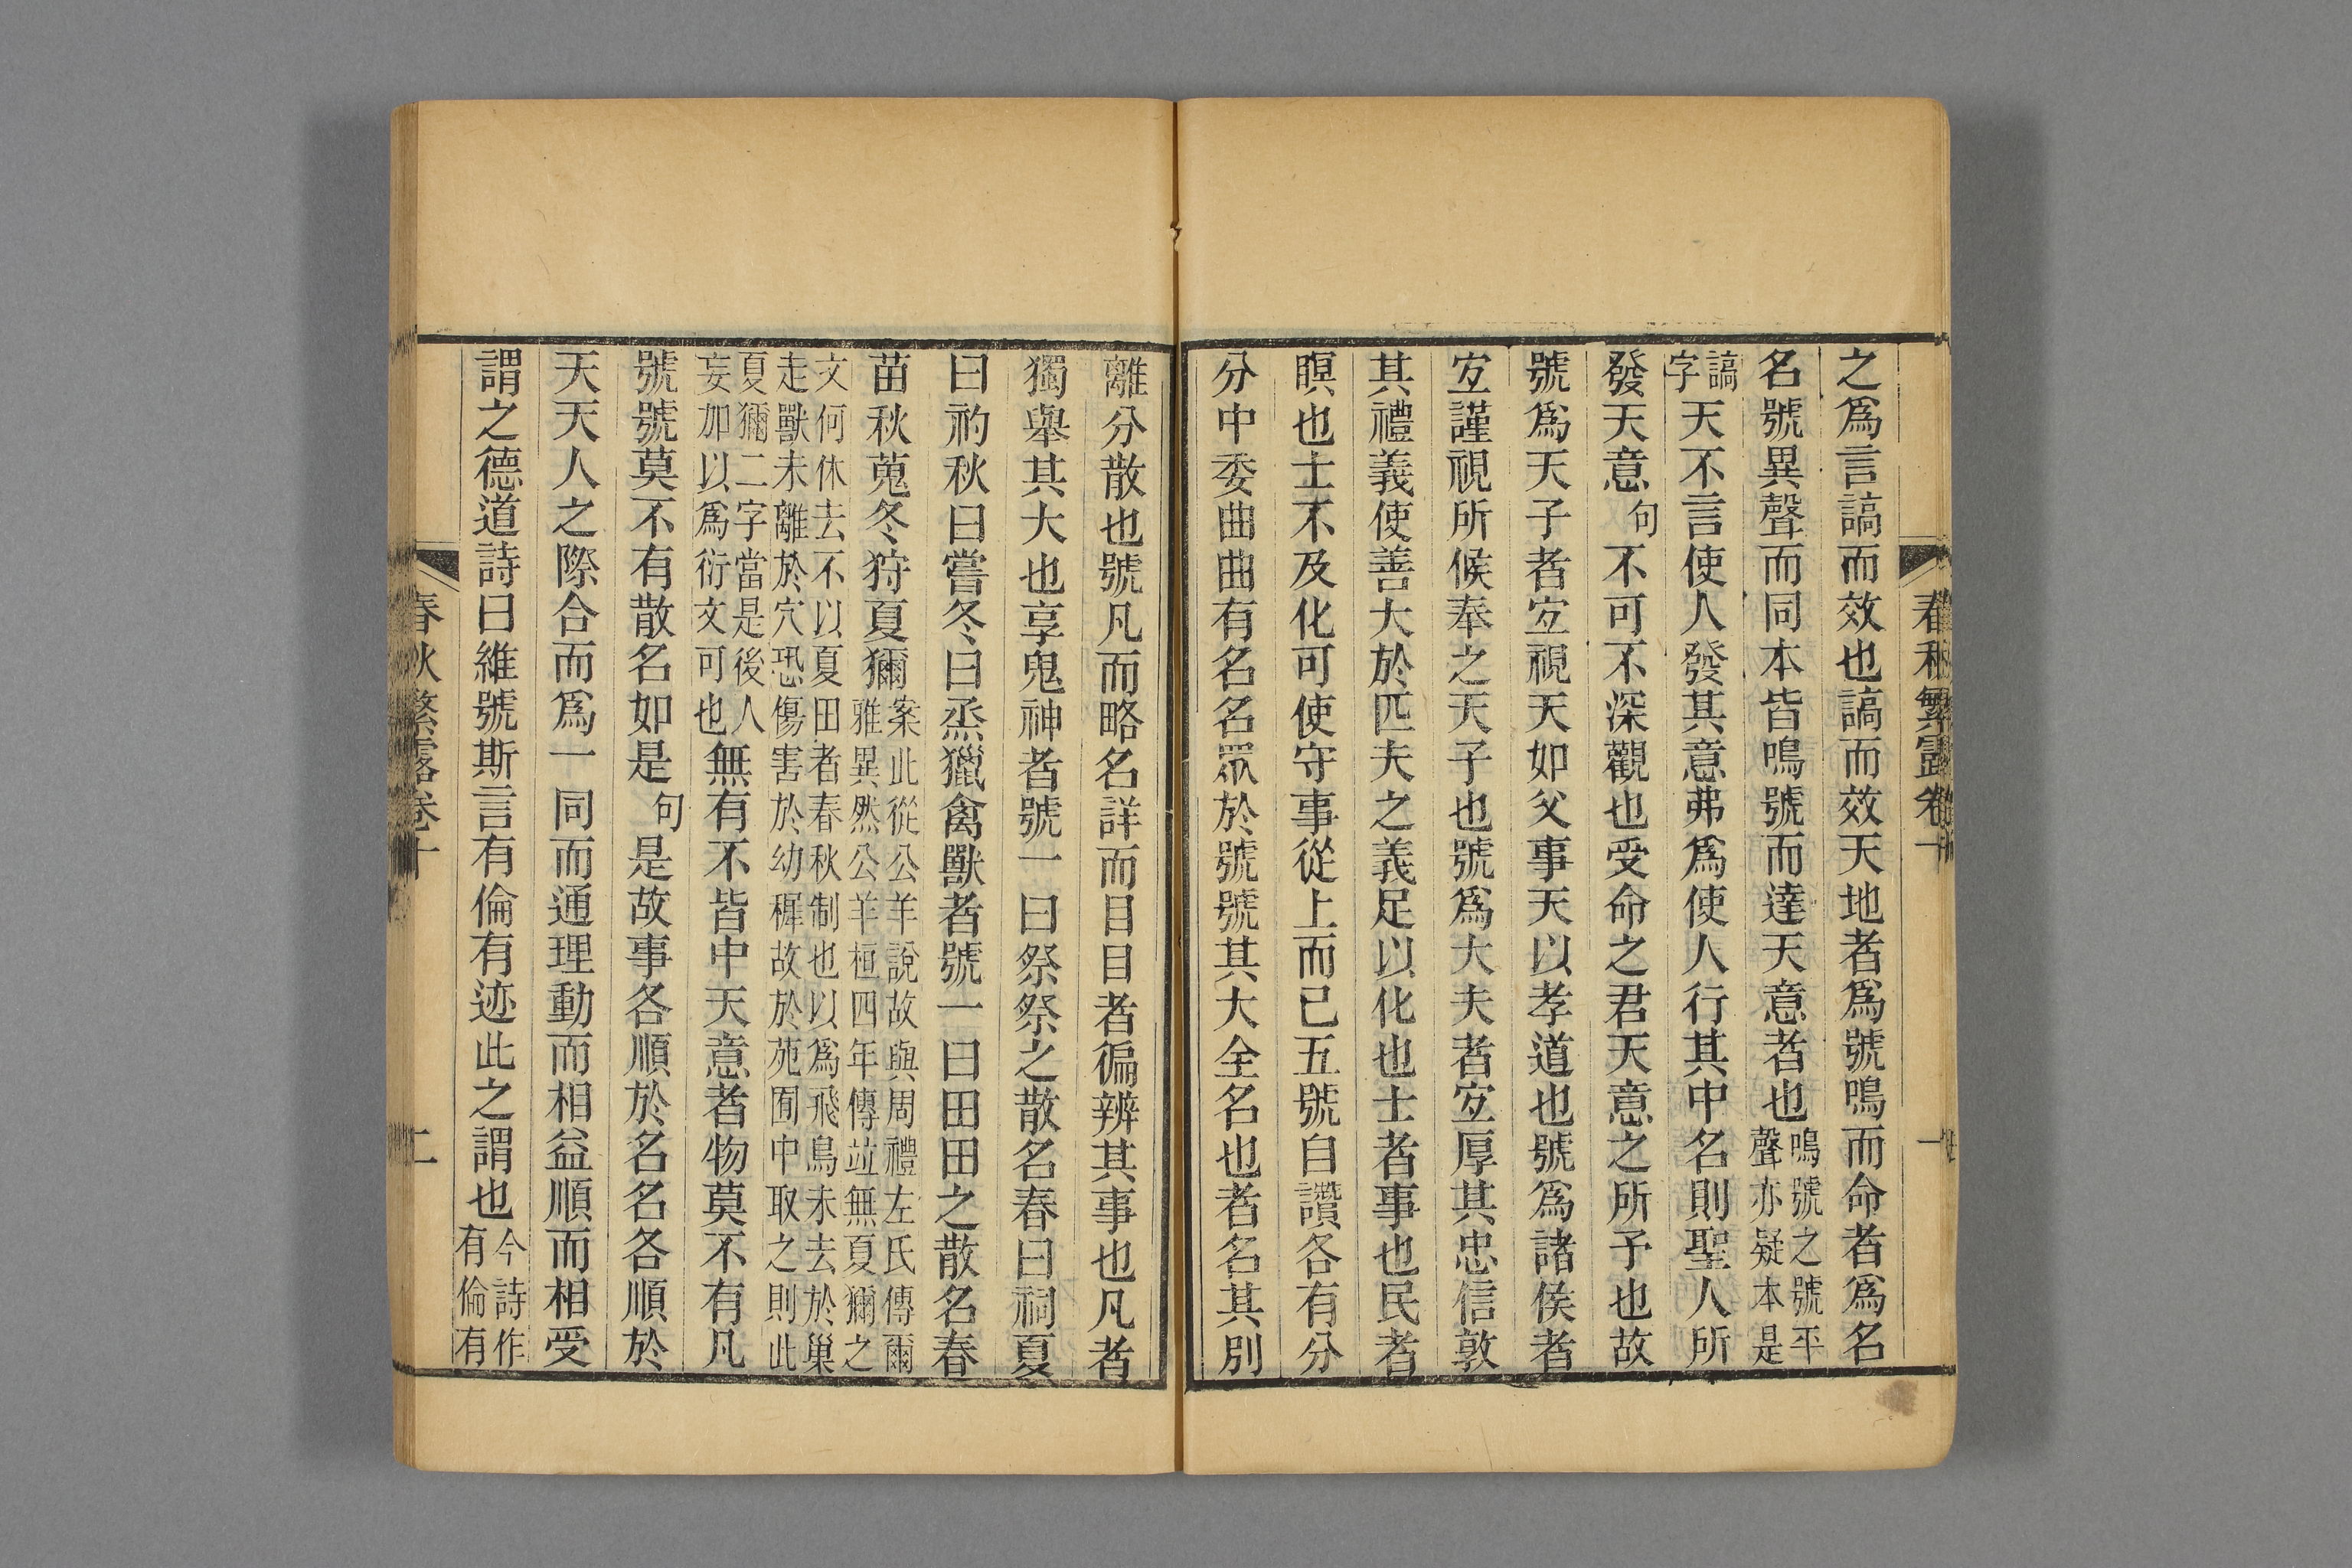 之爲言謞而效也謞而效天地者爲號鳴而命者爲名
名號異聲而同本皆鳴號而達天意者也鳴號之號平聲亦疑本是
謞字天不言使人發其意弗爲使人行其中名則聖人所
發天意句不可不深觀也受命之君天意之所予也故
號爲天子者宐視天如父事天以孝道也號爲諸侯者
宐謹視所候奉之天子也號爲大夫者宐厚其忠信敦
其禮義使善大於匹夫之義足以化也士者事也民者
瞑也士不及化可使守事從上而已五號自讚各有分
分中委曲曲有名名眾於號號其大全名也者名其別
離分散也號凡而略名詳而目目者徧辨其事也凡者
獨舉其大也享鬼神者號一曰祭祭之散名春曰祠夏
曰礿秋曰嘗冬曰烝獵禽獸者號一曰田田之散名春
苗秋蒐冬狩夏獮案此從公羊說故與周禮左氏傳爾雅異然公羊桓四年傳竝無夏獮之
文何休去不以夏田者春秋制也以爲飛鳥未去於巢走獸未離於穴恐傷害於幼稺故於苑囿中取之則此
夏獮二字當是後人妄加以爲衍文可也無有不皆中天意者物莫不有凡
號號莫不有散名如是句是故事各順於名名各順於
天天人之際合而爲一同而通理動而相益順而相受
謂之德道詩曰維號斯言有倫有迹此之謂也今詩作有倫有
春秋繁露卷十
二